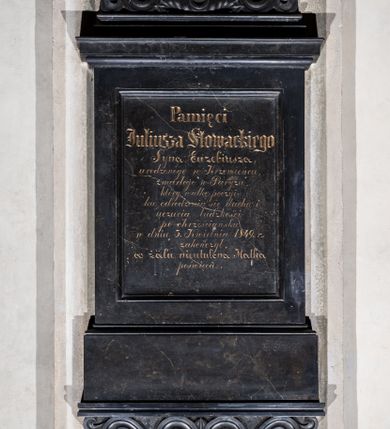 Pamięci
Juliusza Słowackiego
Syna Euzebiusza,
urodzonego w Krzemieńcu,
zmarłego w Paryżu
który walkę poezyi
ku odrodzeniu się ducha i
uczucia ludzkości
po chrześciańsku
w dniu 3. Kwietnia 1849. r.
zakończył
w żalu nieutulona Matka
poświęca.